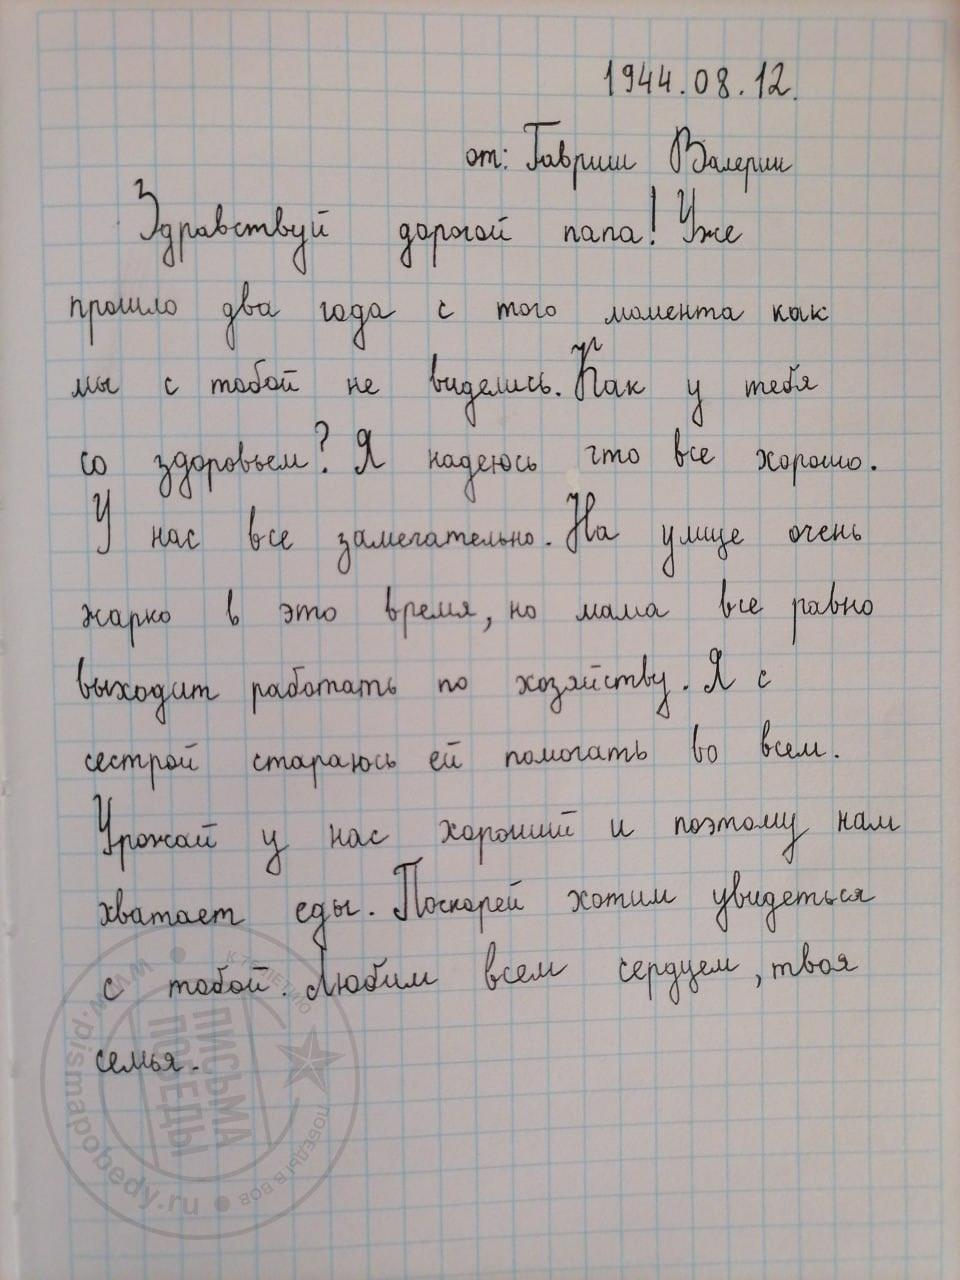 1944.08.12.
от: Гавриш Валерии
Здравствуй дорогой папа! Уже
прошло два года с того момента как
мы с тобой не виделись. Как у тебя
со здоровьем? Я надеюсь что все хорошо.
У нас все замечательно. На улице очень
жарко в это время, но мама все равно
выходит работать по хозяйству. Я с
сестрой стараюсь ей помогать во всем.
Урожай у нас хороший и поэтому нам
хватает еды. Поскорей хотим увидеться
с тобой. Любим всем сердцем, твоя
семья.
www.pismapobedy.ru
К 75-ЛЕТИЮ
ПОБЕДЫ В ВОВ
ПИСЬМА
ПОБЕДЫ